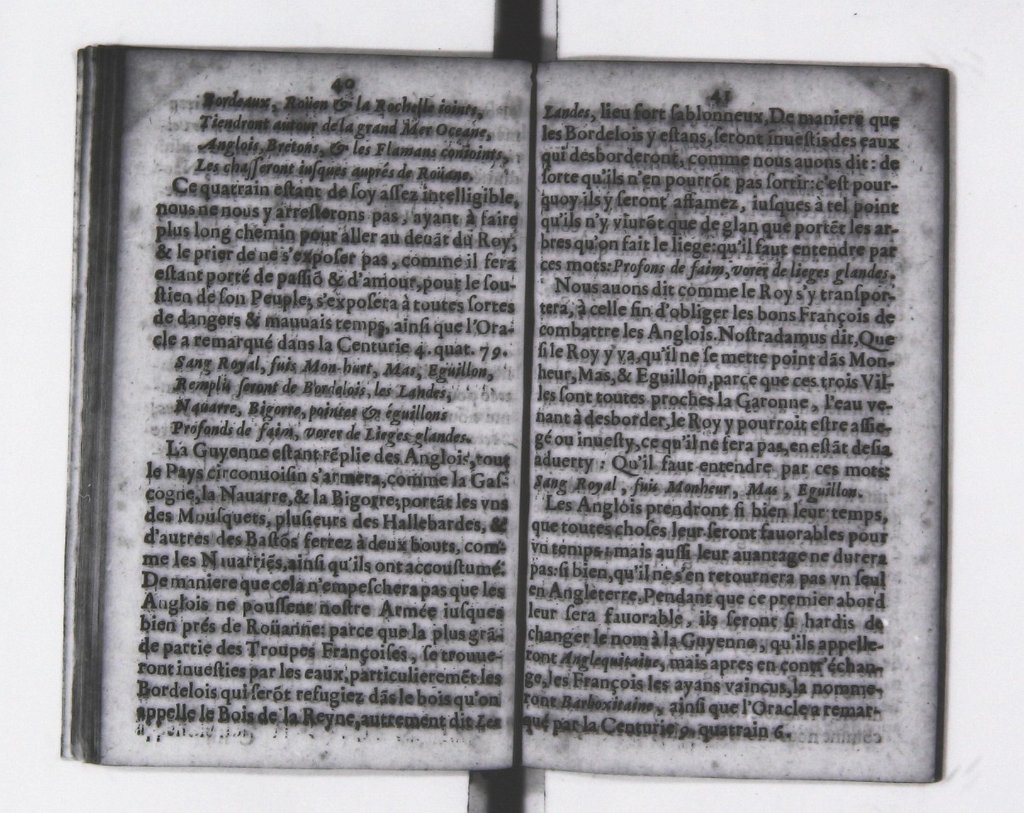 40
Bordeaux, Roüen & la Rochelle ioints,
Tiendront autour de la grand Mer Oceane,
Anglois, Bretons, & les Flamans conioints,
Les chasseront iusques auprés de Roüane.
Ce quatrain estant de soy assez intelligible,
nous ne nous y arresterons pas, ayant à faire
plus long chemin pour aller au deuāt du Roy,
& le prier de ne s'exposer pas, comme il fera
estant porté de passiō & d'amour, pour le sou-
stien de son Peuple; s'exposera à toutes sortes
de dangers & mauuais temps, ainsi que l'Ora-
cle a remarqué dans la Centurie 4. quat. 79.
Sang Royal, fuis Mon-hurt, Mas, Eguillon,
Remplis seront de Bordelois, les Landes,
Nauarre, Bigorre, pointes & éguillons
Profonds de faim, vorer de Lieges glandes.
La Guyenne estant rēplie des Anglois, tout
le Pays circonuoisin s'armera, comme la Gas-
cogne, la Nauarre, & la Bigorre; portāt les vns
des Mousquets, plusieurs des Hallebardes, &
d'autres des Bastōs ferrez à deux bouts, com-
me les Nauarriēs, ainsi qu'ils ont accoustumé.
De maniere que cela n'empeschera pas que les
Anglois ne poussent nostre Armée iusques
bien prés de Roüanne: parce que la plus grā-
de partie des Troupes Françoises, se trouue-
ront inuesties par les eaux, particulieremēt les
Bordelois qui serōt refugiez dās le bois qu'on
appelle le Bois de la Reyne, autrement dit Les
41
Landes, lieu fort sablonneux. De maniere que
les Bordelois y estans, seront inuestis des eaux
qui desborderont, comme nous auons dit: de
sorte qu'ils n'en pourrōt pas sortir: c'est pour-
quoy ils y seront affamez, iusques à tel point
qu'ils n'y viurōt que de glan que portēt les ar-
bres qu'on fait le liege: qu'il faut entendre par
ces mots: Profons de faim, vorer de lieges glandes.
Nous auons dit comme le Roy s'y transpor-
tera, à celle fin d'obliger les bons François de
combattre les Anglois. Nostradamus dit, Que
si le Roy y va, qu'il ne se mette point dās Mon-
heur, Mas, & Eguillon, parce que ces trois Vil-
les sont toutes proches la Garonne, l'eau ve-
nant à desborder, le Roy y pourroit estre assie-
gé ou inuesty, ce qu'il ne fera pas, en estāt desia
aduerty: Qu'il faut entendre par ces mots:
Sang Royal, fuis Monheur, Mas, Eguillon.
Les Anglois prendront si bien leur temps,
que toutes choses leur seront fauorables pour
vn temps: mais aussi leur auantage ne durera
pas: si bien, qu'il ne s'en retournera pas vn seul
en Angleterre. Pendant que ce premier abord
leur sera fauorable, ils seront si hardis de
changer le nom à la Guyenne, qu'ils appelle-
ront Anglequitaine, mais apres en contr'échan-
ge, les François les ayans vaincus, la nomme-
ront Barboxitaine, ainsi que l'Oracle a remar-
qué par la Centurie 9. quatrain 6.